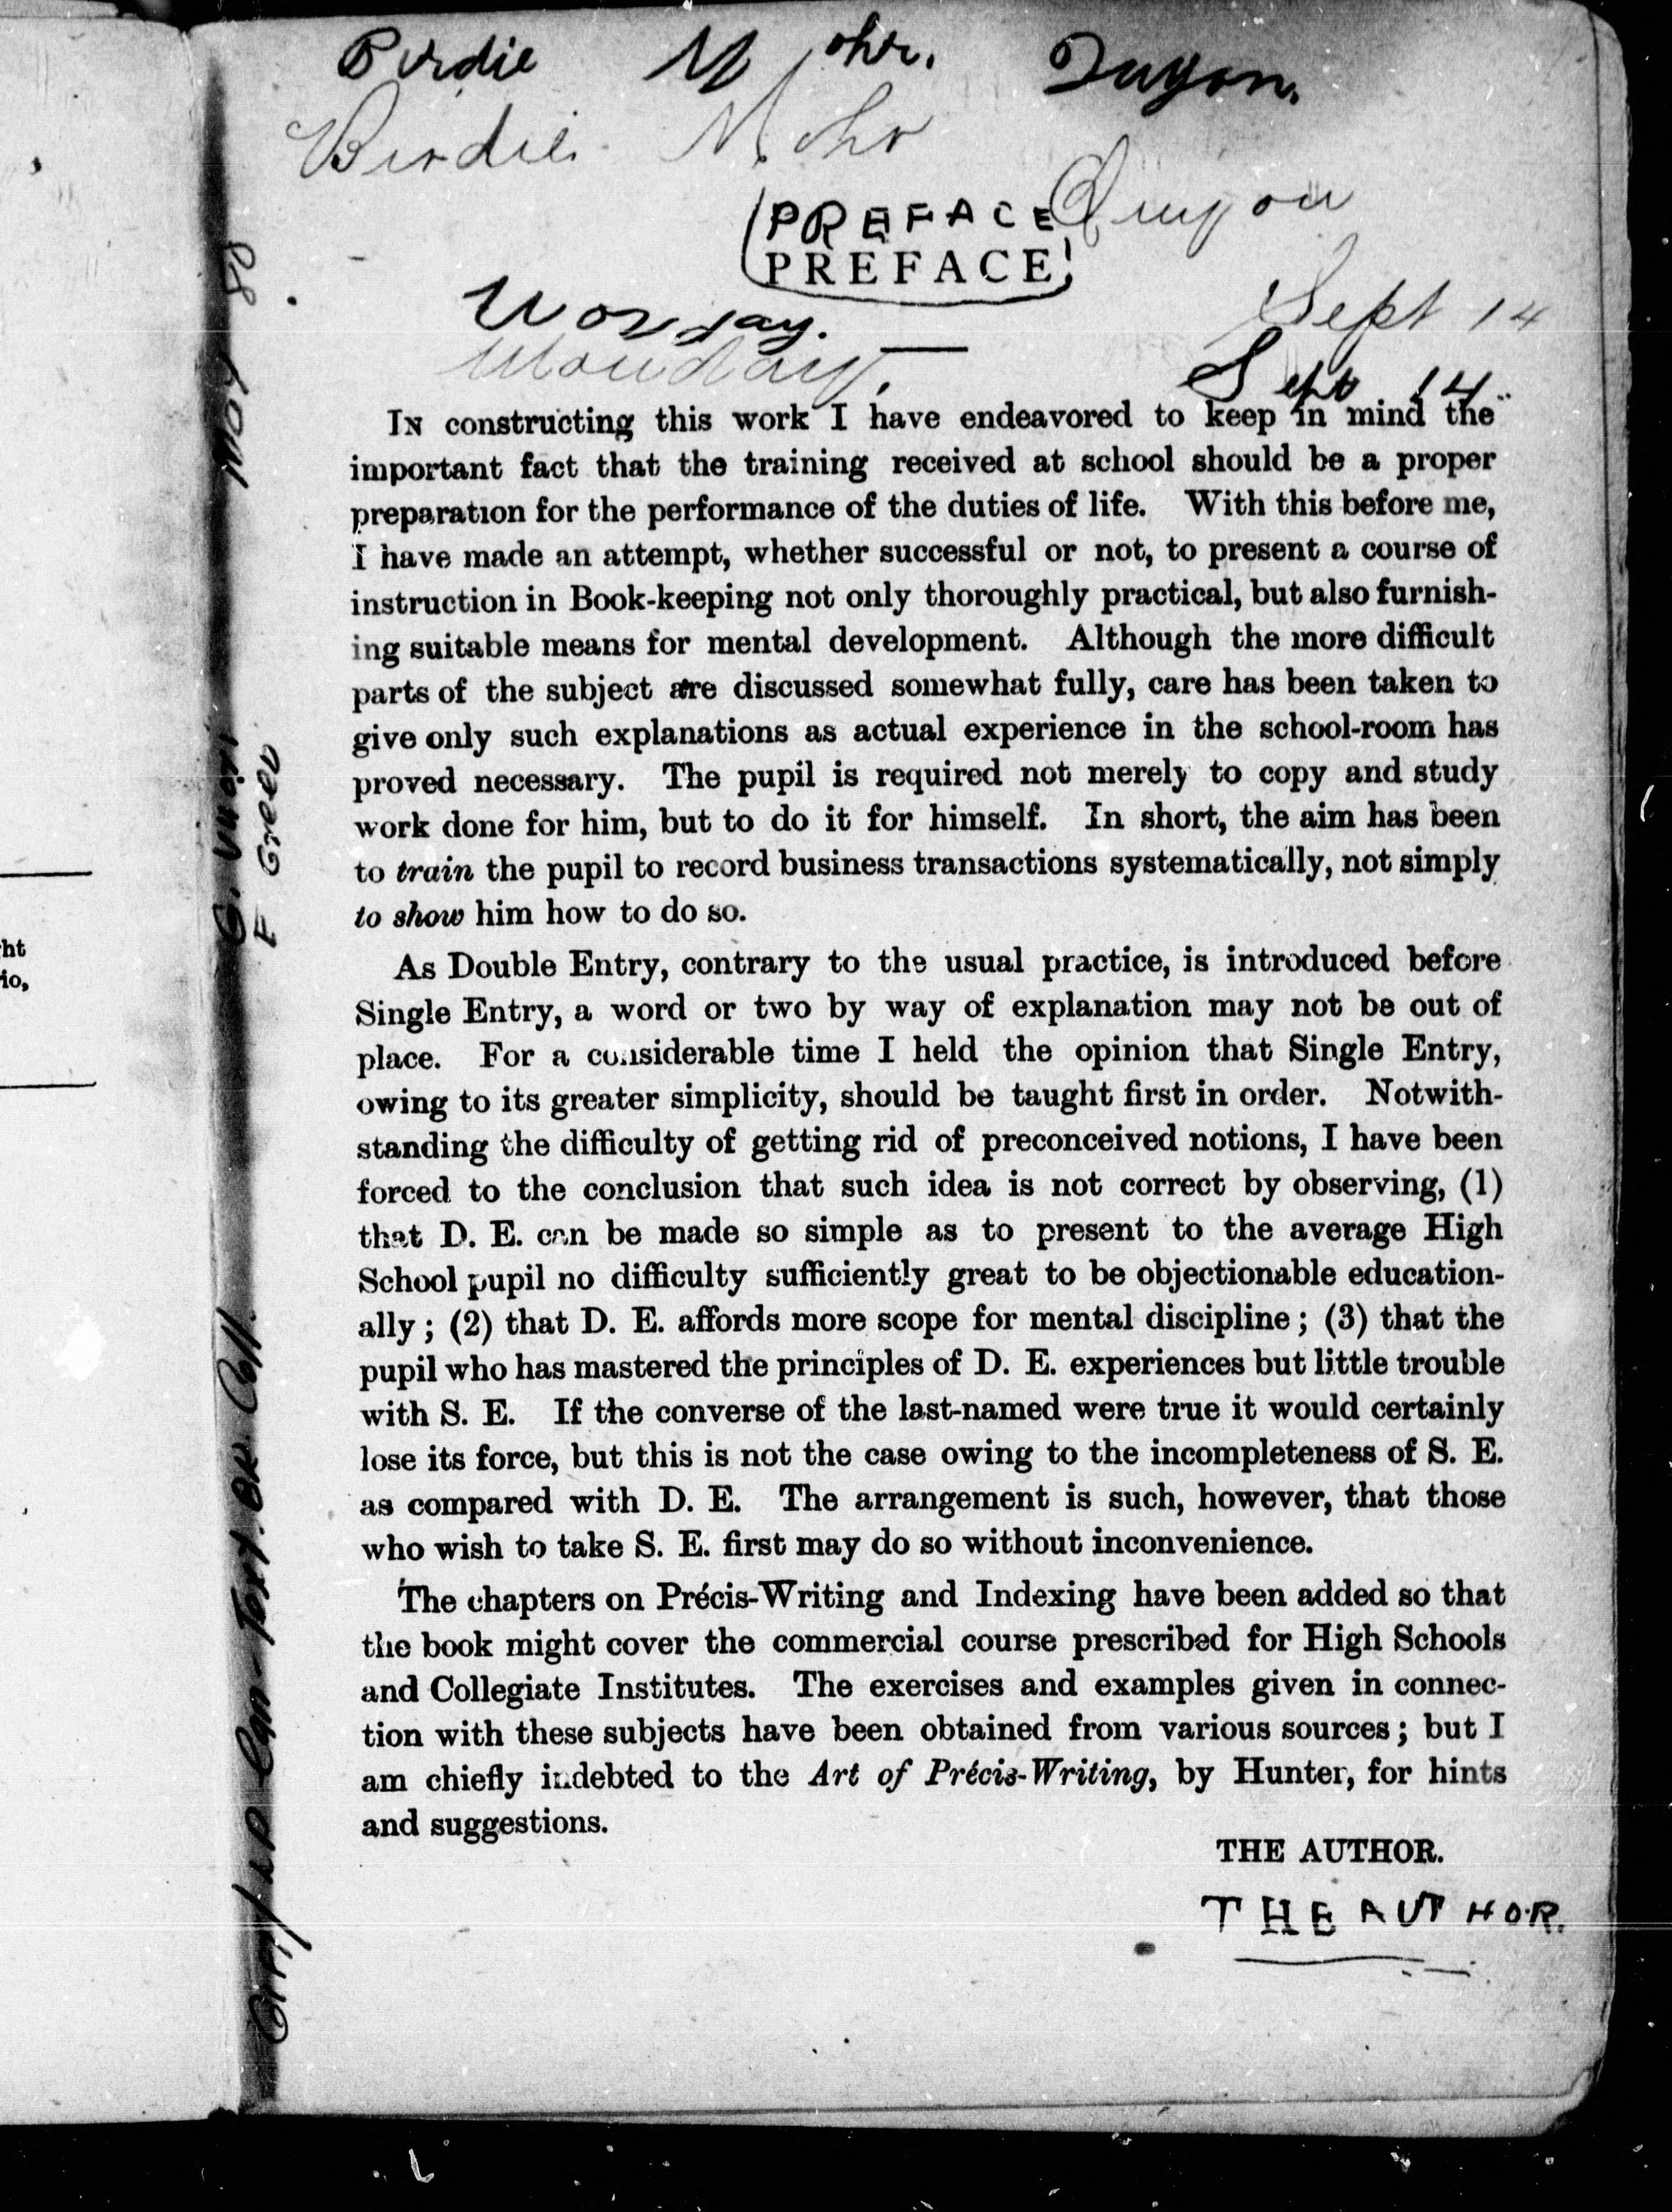 Birdie Mohr.
Birdie Mohr
PREFACE
PREFACE
Monday.
Sept 14
Monday,
Sept 14
IN constructing this work I have endeavored to keep in mind the
important fact that the training received at school should be a proper
preparation for the performance of the duties of life. With this before me,
I have made an attempt, whether successful or not, to present a course of
instruction in Book-keeping not only thoroughly practical, but also furnish-
ing suitable means for mental development. Although the more difficult
parts of the subject are discussed somewhat fully, care has been taken to
give only such explanations as actual experience in the school-room has
proved necessary. The pupil is required not merely to copy and study
work done for him, but to do it for himself. In short, the aim has been
to train the pupil to record business transactions systematically, not simply
to show him how to do so.
As Double Entry, contrary to the usual practice, is introduced before
Single Entry, a word or two by way of explanation may not be out of
place. For a considerable time I held the opinion that Single Entry,
owing to its greater simplicity, should be taught first in order. Notwith-
standing the difficulty of getting rid of preconceived notions, I have been
forced to the conclusion that such idea is not correct by observing, (1)
that D. E. can be made so simple as to present to the average High
School pupil no difficulty sufficiently great to be objectionable education-
ally; (2) that D. E. affords more scope for mental discipline; (3) that the
pupil who has mastered the principles of D. E. experiences but little trouble
with S. E. If the converse of the last-named were true it would certainly
lose its force, but this is not the case owing to the incompleteness of S. E.
as compared with D. E. The arrangement is such, however, that those
who wish to take S. E. first may do so without inconvenience.
The chapters on Précis-Writing and Indexing have been added so that
the book might cover the commercial course prescribed for High Schools
and Collegiate Institutes. The exercises and examples given in connec-
tion with these subjects have been obtained from various sources; but I
am chiefly indebted to the Art of Précis-Writing, by Hunter, for hints
and suggestions.
THE AUTHOR.
THE AUTHOR.
ht
io,